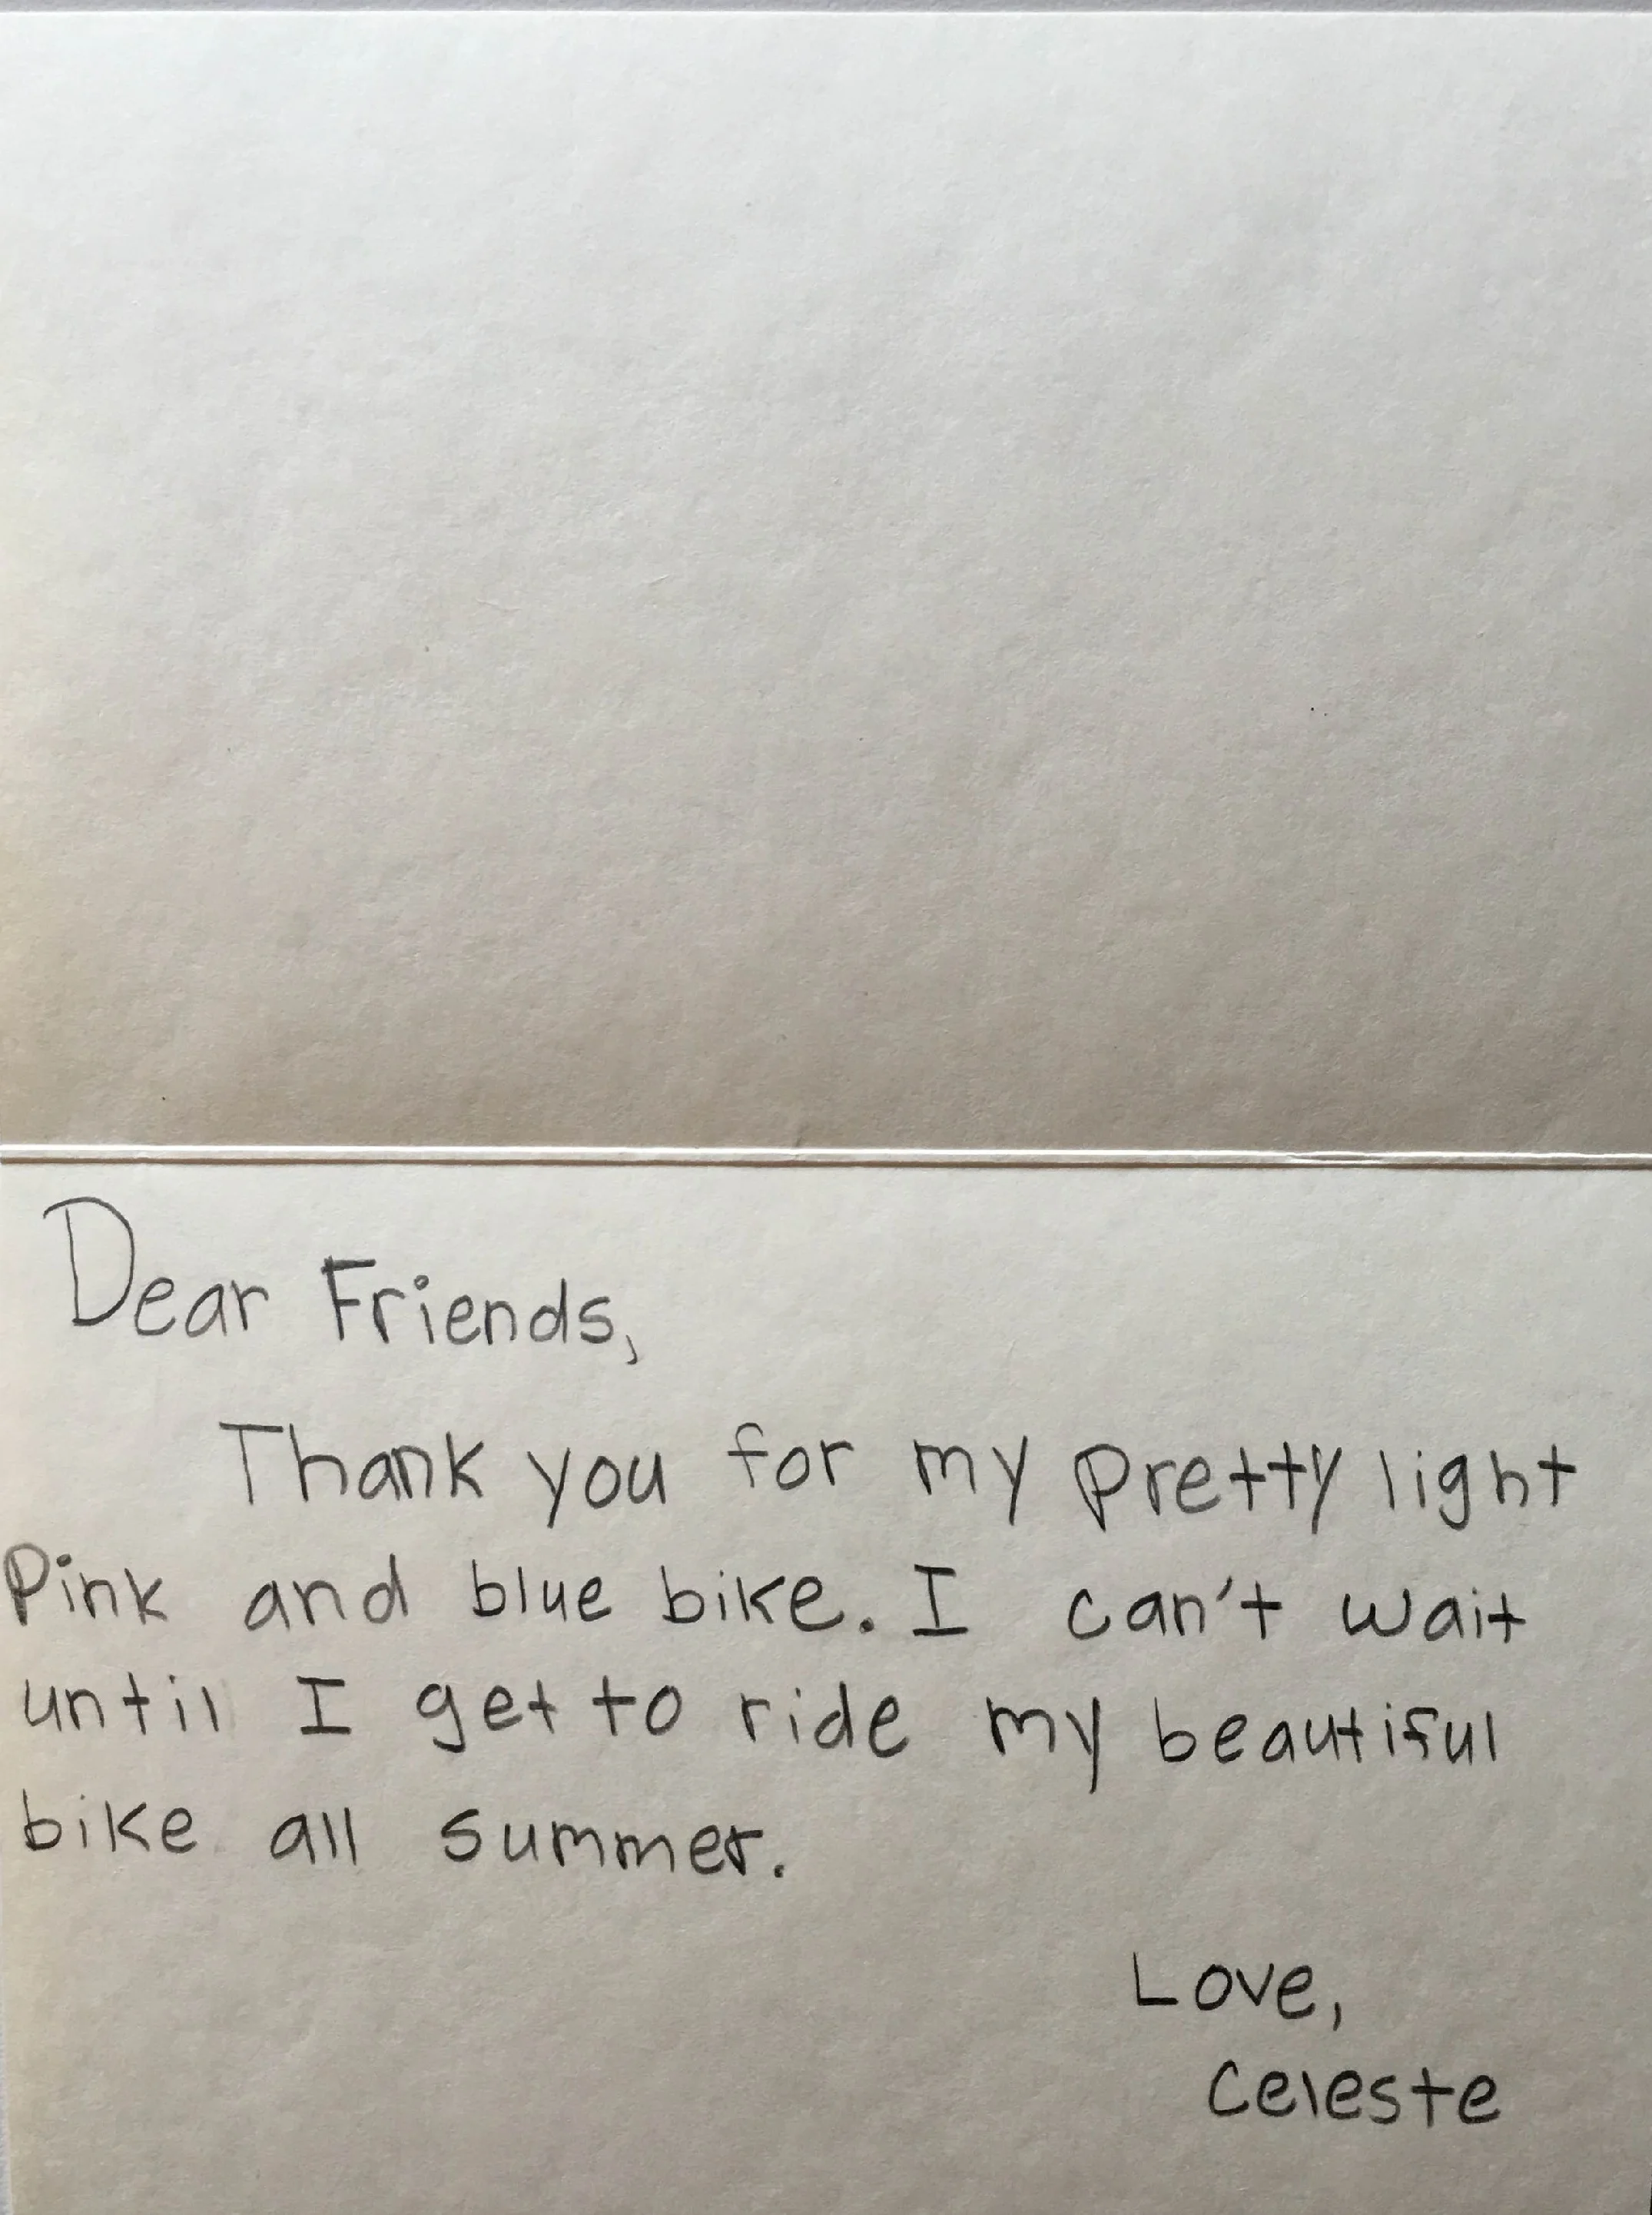 Dear Friends,
Thank you for my pretty light
Pink and blue bike. I can't wait
until I get to ride my beautiful
bike all summer.
Love,
Celeste